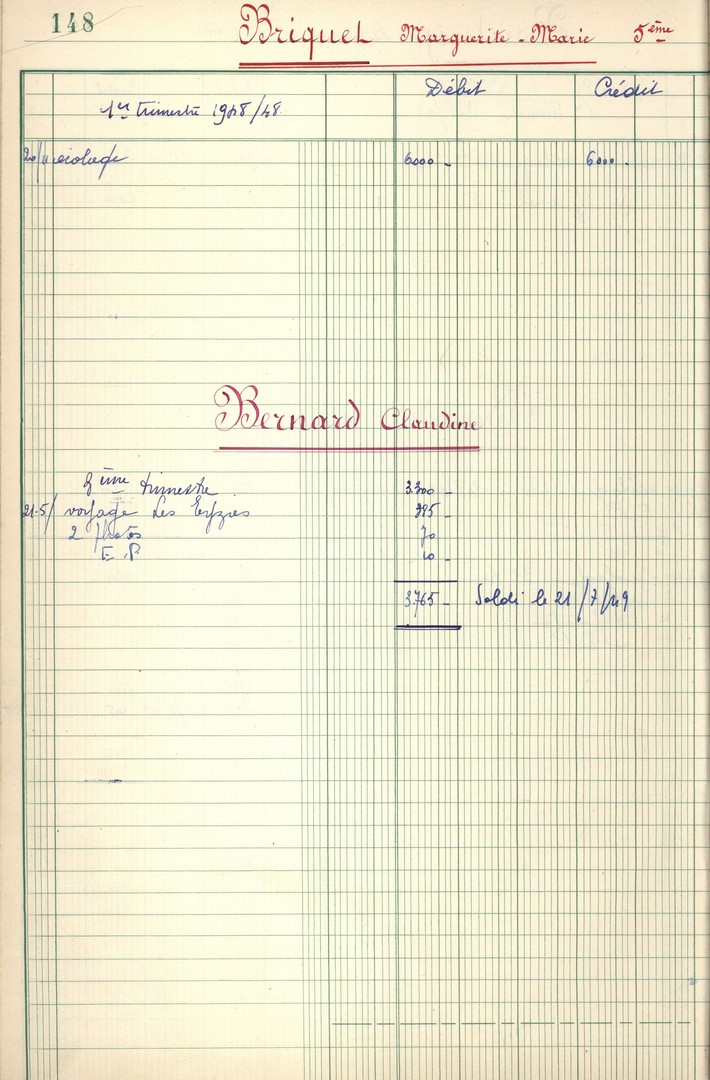 148 Briquel Marguerite-Marie 5ème
Débit Crédit
1er trimestre 1948/48
20/11 scolage 6000 - 6000 .
Bernard Claudine
3ème trimestre 3.300 -
21-5/ voyage Les Eyzies 385 -
2 photos 70
E.P. 10 -
3.765 - Soldé le 21/7/49